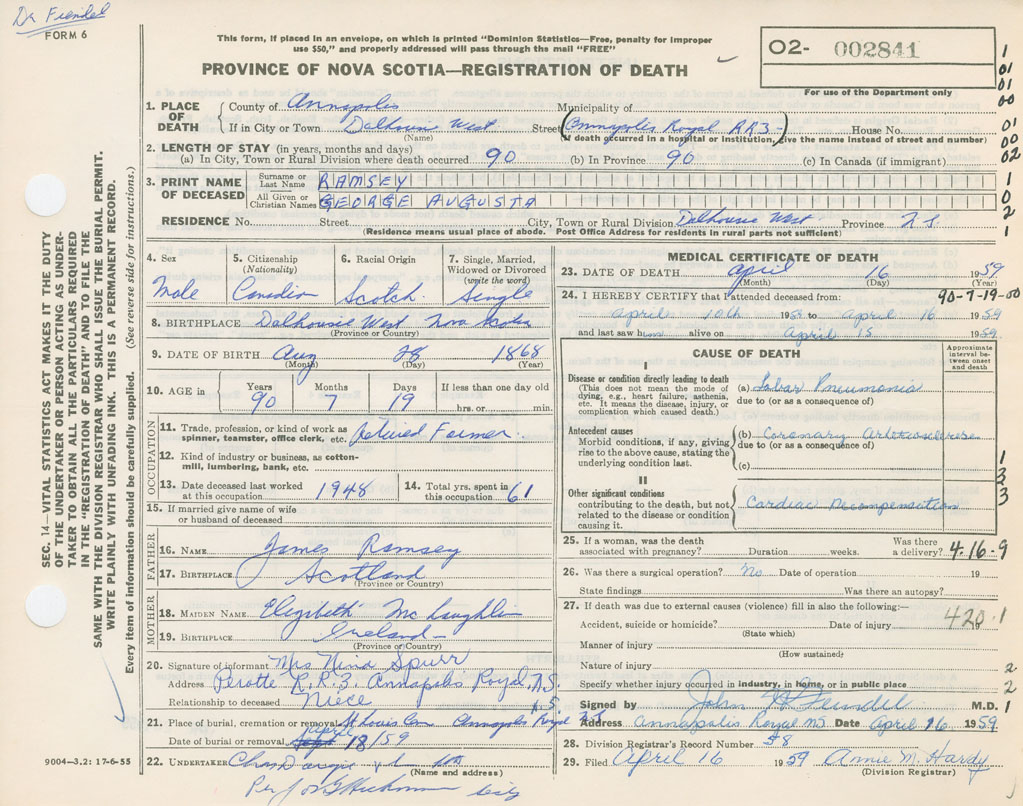 Dr Fiendel
FORM 6
This form, if placed in an envelope, on which is printed "Dominion Statistics—Free, penalty for improper
use $50," and properly addressed will pass through the mail "FREE"
PROVINCE OF NOVA SCOTIA—REGISTRATION OF DEATH
O2- 002841
For use of the Department only
1. PLACE OF DEATH
County of Annapolis Municipality of
If in City or Town Dalhousie West Street (Annapolis Royal R.R.3-) House No.
(Name) (If death occurred in a hospital or institution, give the name instead of street and number)
2. LENGTH OF STAY (in years, months and days)
(a) In City, Town or Rural Division where death occurred 90 (b) In Province 90 (c) In Canada (if immigrant)
3. PRINT NAME OF DECEASED
Surname or Last Name RAMSEY
All Given or Christian Names GEORGE AUGUSTA
RESIDENCE No. Street City, Town or Rural Division Dalhousie West Province N S
(Residence means usual place of abode. Post Office Address for residents in rural parts not sufficient)
4. Sex Male
5. Citizenship (Nationality) Canadian
6. Racial Origin Scotch.
7. Single, Married, Widowed or Divorced (write the word) Single
8. BIRTHPLACE Dalhousie West Nova Scotia
(Province or Country)
9. DATE OF BIRTH Aug 28 1868
(Month) (Day) (Year)
10. AGE in Years Months Days If less than one day old
90 7 19 hrs. or min.
OCCUPATION
11. Trade, profession, or kind of work as
spinner, teamster, office clerk, etc. Retired Farmer.
12. Kind of industry or business, as cotton-
mill, lumbering, bank, etc.
13. Date deceased last worked
at this occupation 1948
14. Total yrs. spent in
this occupation 61
15. If married give name of wife
or husband of deceased
FATHER
16. NAME James Ramsey
17. BIRTHPLACE Scotland
(Province or Country)
MOTHER
18. MAIDEN NAME Elizabeth Mc Laughlin
19. BIRTHPLACE Ireland-
(Province or Country)
20. Signature of informant Mrs Nina Spurr
Address Perotte R.R.3. Annapolis Royal, N.S.
Relationship to deceased Niece
21. Place of burial, cremation or removal St Louis Cem Annapolis Royal N.S.
Date of burial or removal April 18/59
22. UNDERTAKER
(Name and address)
MEDICAL CERTIFICATE OF DEATH
23. DATE OF DEATH April 16 1959
(Month) (Day) (Year)
24. I HEREBY CERTIFY that I attended deceased from: 90-7-19-00
April 10th 1959 to April 16 1959
and last saw him alive on April 15 1959
CAUSE OF DEATH
Approximate interval between onset and death
I
Disease or condition directly leading to death
(This does not mean the mode of
dying, e.g., heart failure, asthenia,
etc. It means the disease, injury, or
complication which caused death.)
(a) Lobar Pneumonia
due to (or as a consequence of)
Antecedent causes
Morbid conditions, if any, giving
rise to the above cause, stating the
underlying condition last.
(b) Coronary Arteriosclerosis
due to (or as a consequence of)
(c)
II
Other significant conditions
contributing to the death, but not
related to the disease or condition
causing it.
Cardiac Decompensation
25. If a woman, was the death
associated with pregnancy? Duration weeks. Was there
a delivery? 4-16-9
26. Was there a surgical operation? No Date of operation 19
State findings Was there an autopsy?
27. If death was due to external causes (violence) fill in also the following:—
Accident, suicide or homicide? Date of injury 19 420.1
(State which)
Manner of injury
(How sustained)
Nature of injury
Specify whether injury occurred in industry, in home, or in public place
Signed by John Fiendel M.D.
Address Annapolis Royal NS Date April 16 1959
28. Division Registrar's Record Number 58
29. Filed April 16 1959 Annie M. Hardy
(Division Registrar)
1
01
01
00
01
00
02
1
0
2
1
1
3
3
2
2
1
SEC. 14—VITAL STATISTICS ACT MAKES IT THE DUTY
OF THE UNDERTAKER OR PERSON ACTING AS UNDER-
TAKER TO OBTAIN ALL THE PARTICULARS REQUIRED
IN THE "REGISTRATION OF DEATH" AND TO FILE THE
SAME WITH THE DIVISION REGISTRAR WHO SHALL ISSUE THE BURIAL PERMIT.
WRITE PLAINLY WITH UNFADING INK. THIS IS A PERMANENT RECORD.
Every item of information should be carefully supplied. (See reverse side for instructions.)
9004—3.2: 17-6-55